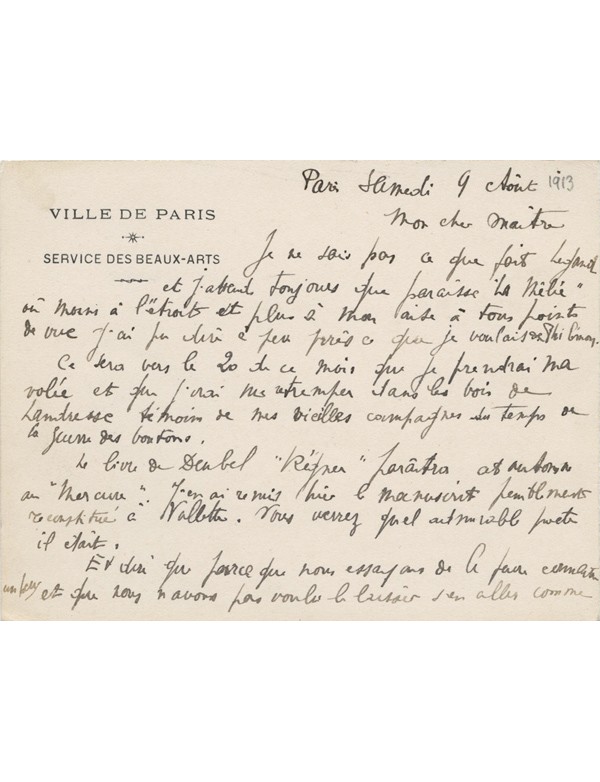 Paris Samedi 9 Août 1913
VILLE DE PARIS
SERVICE DES BEAUX-ARTS
Mon cher Maître
Je ne sais pas ce que fait
et j'attend toujours que paraisse "La Mêlée"
où moins à l'étroit et plus à mon aise à tous points
de vue j'ai pu dire à peu près ce que je voulais
Ce sera vers le 20 de ce mois que je prendrai ma
volée et que j'irai me retremper dans les bois de
Landresse témoins de mes vieilles campagnes du temps de
la guerre des boutons.
Le livre de Deubel "Régner" paraîtra cet automne
au "Mercure". J'en ai remis hier le manuscrit péniblement
reconstitué à Vallette. Vous verrez quel admirable poète
il était.
Et dire que parce que nous essayons de le faire connaître
un peu et que nous n'avons pas voulu le laisser s'en aller comme